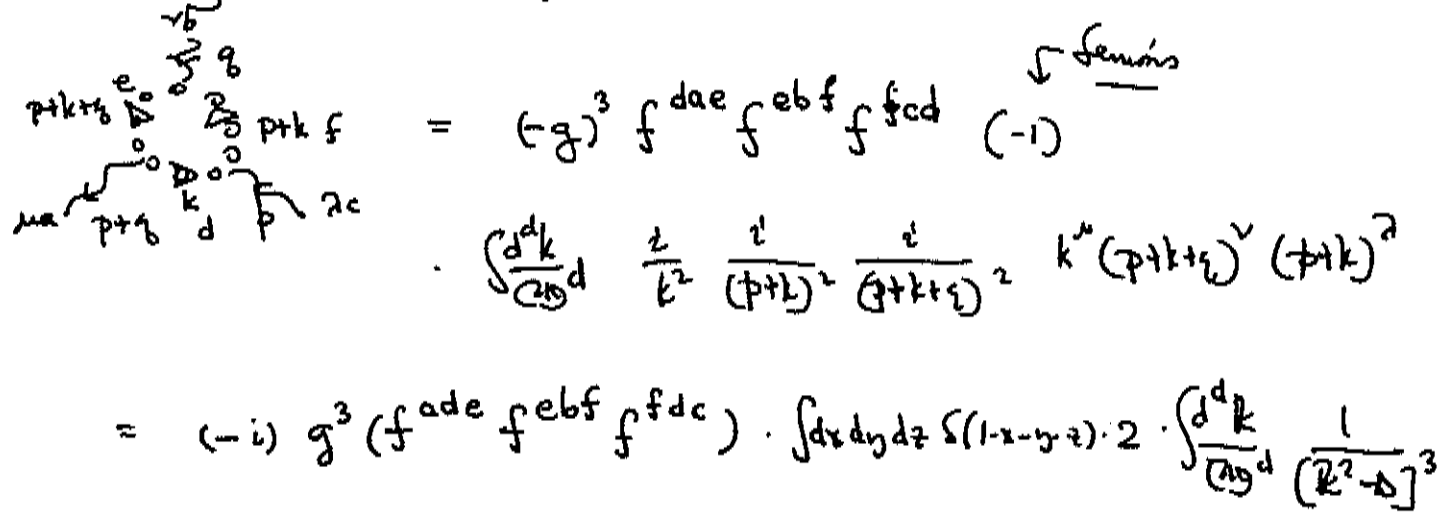 νb
q
e
p+k+q
p+k f
μa
p+q
k
d
p
λc
= (-g)³ f^{dae} f^{ebf} f^{fcd} (-1)
· ∫ d^d k/(2π)^d i/k² i/(p+k)² i/(p+k+q)² k^μ (p+k+q)^ν (p+k)^λ
= (-i) g³ (f^{ade} f^{ebf} f^{fdc}) · ∫dx dy dz δ(1-x-y-z) · 2 · ∫ d^d k/(2π)^d 1/[k²-Δ]³